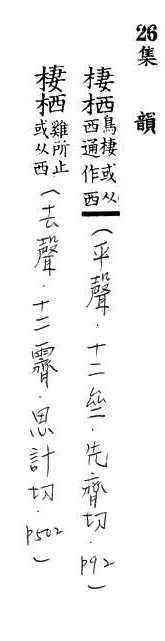 26
集 韻
棲栖鳥棲或从西通作西（平聲．十二亝．先齊切．p92）
棲栖雞所止或从西（去聲．十二霽．思計切．p502）